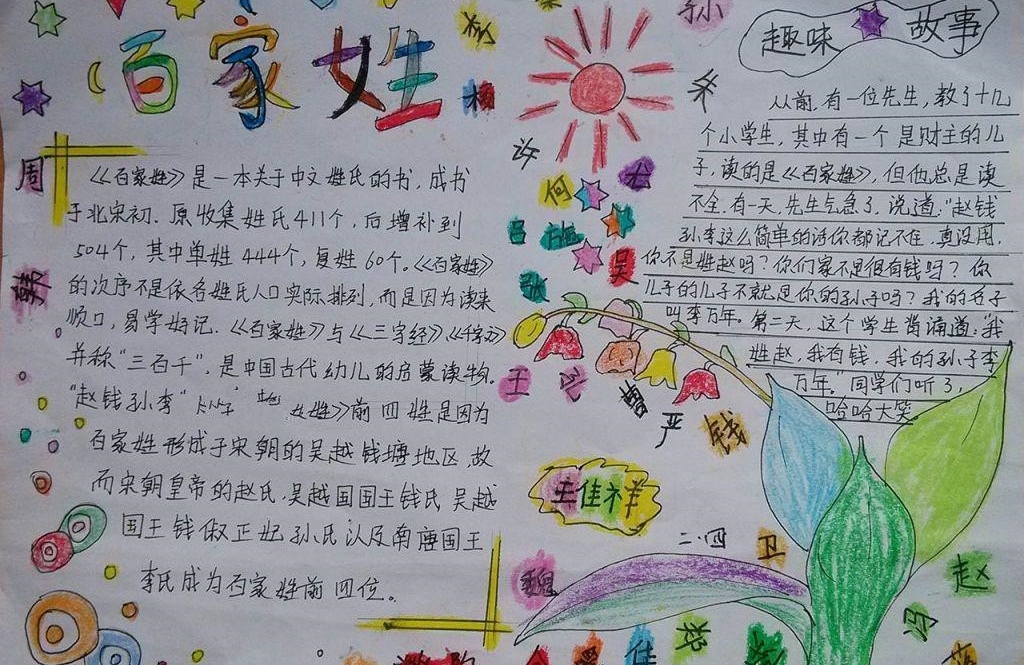 百家姓
周
韩
杨
《百家姓》是一本关于中文姓氏的书,成书
于北宋初.原收集姓氏411个,后增补到
504个,其中单姓444个,复姓60个。《百家姓》
的次序不是依各姓氏人口实际排列,而是因为读来
顺口,易学好记.《百家姓》与《三字经》《千字文》
并称"三百千",是中国古代幼儿的启蒙读物.
"赵钱孙李" 姓》前四姓是因为
百家姓形成于宋朝的吴越钱塘地区,故
而宋朝皇帝的赵氏,吴越国国王钱氏 吴越
国王钱俶正妃孙氏以及南唐国王
李氏成为百家姓前四位。
孙
朱
许
何
尤
吕
施
张
吴
王
孔
曹
严
钱
王佳祥
二.四
卫
魏
赵
冯
佳
趣味故事
从前,有一位先生,教了十几
个小学生,其中有一个是财主的儿
子,读的是《百家姓》,但他总是读
不全.有一天,先生气急了,说道:"赵钱
孙李这么简单的话你都记不住,真没用,
你不是姓赵吗?你们家不是很有钱吗?你
儿子的儿子不就是你的孙子吗?我的名字
叫李万年。第二天,这个学生背诵道:"我
姓赵,我有钱,我的孙子李
万年."同学们听了,
哈哈大笑